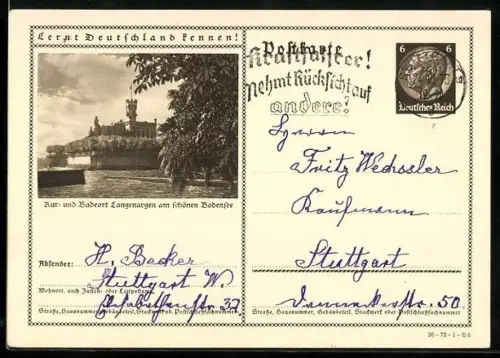 Lernt Deutschland kennen!
Kur- und Badeort Langenargen am schönen Bodensee
Absender:
H. Becker
Stuttgart W.
Wohnort, auch Zustell- oder Leitpostamt
Elisabethenstr. 37
Straße, Hausnummer, Gebäudeteil, Stockwerk od. Postschließfachnummer
Postkarte
Kraftfahrer!
Nehmt Rücksicht auf
andere!
6 6
Deutsches Reich
Herrn
Fritz Wechssler
Kaufmann
Stuttgart
Danneckerstr. 50.
Straße, Hausnummer, Gebäudeteil, Stockwerk oder Postschließfachnummer